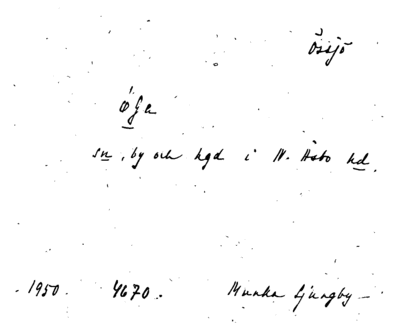 Össjö
öʃa
sn, by och hgd i N. Åsbo hd.
1950. 4670. Munka Ljungby